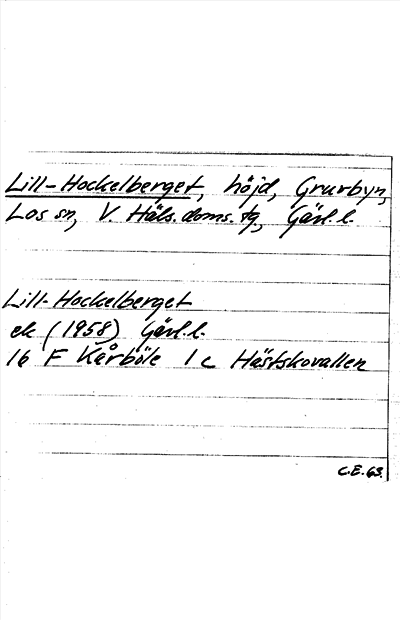 Lill-Hockelberget, höjd, Gruvbyn,
Los sn, V. Häls. doms. tg, Gävl. l.
Lill-Hockelberget
ek (1958) Gävl. l.
16 F Kårböle 1 c Hästskovallen
C.E. 63.